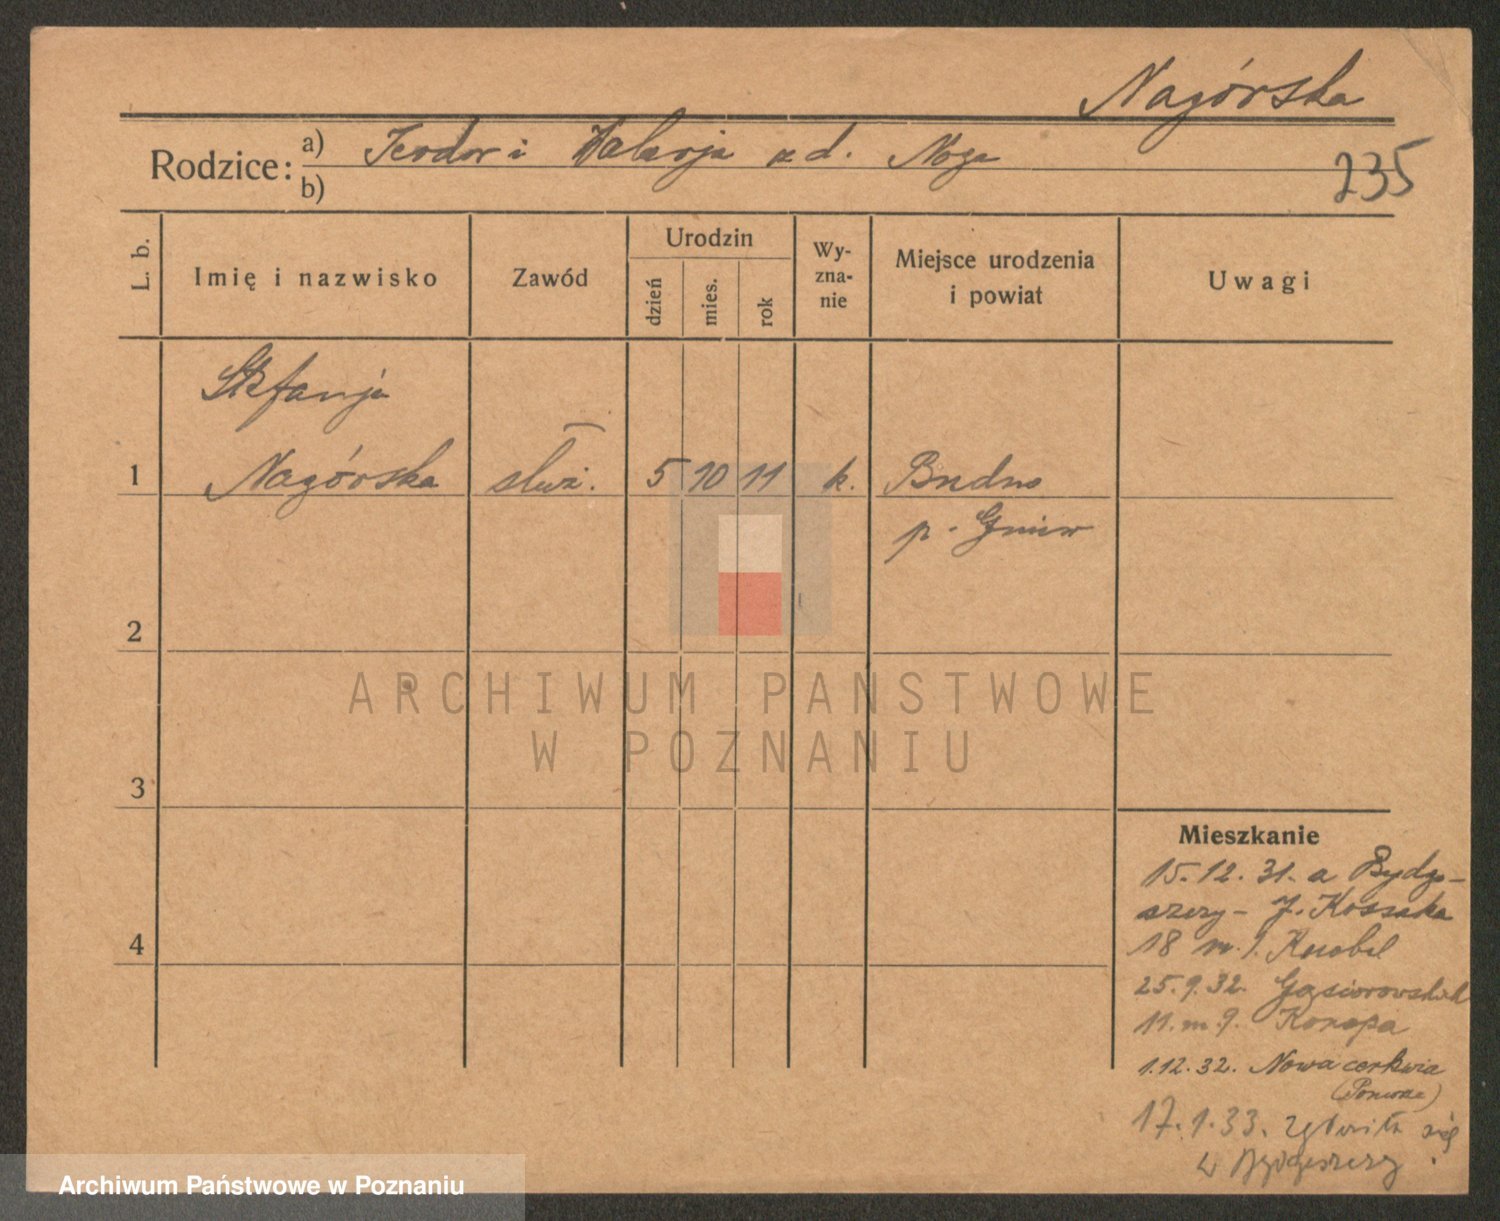 Nagórska
Rodzice: a) Teodor i Walerja z d. Noga
235
b)
L. b.
Imię i nazwisko
Zawód
Urodzin
dzień
mies.
rok
Wy-
zna-
nie
Miejsce urodzenia
i powiat
Uwagi
Stefanja
1 Nagórska służ. 5 10 11 k.
p. Gniew
2
ARCHIWUM PAŃSTWOWE
W POZNANIU
3
Mieszkanie
15.12.31. a Bydgo-
szczy - J. Kossaka
18 m. 1. Knobel
4
25.9.32. Gąsiorowskich
11. m. 9. Konopa
1.12.32. Nowa cerkwia
17.1.33. się
w Bydgoszczy
Archiwum Państwowe w Poznaniu